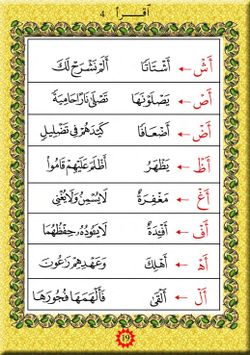 اقرأ 4
أَشْ ← أَشْتَاتًا أَلَمْ نَشْرَحْ لَكَ
أَصْ ← يَصْلَوْنَهَا تَصْلَىٰ نَارًا حَامِيَةً
أَضْ ← أَضْعَافًا كَيْدَهُمْ فِي تَضْلِيلٍ
أَظْ ← يَظْهَرُ أَظْلَمَ عَلَيْهِمْ قَامُوا
أَغْ ← مَغْفِرَةٌ لَا يُسْمِنُ وَلَا يُغْنِي
أَفْ ← أَفْئِدَةٌ لَا يَئُودُهُ حِفْظُهُمَا
أَهْ ← أَهْلَكَ وَعَهْدِهِمْ رَاعُونَ
أَلْ ← أَلْقَىٰ فَأَلْهَمَهَا فُجُورَهَا
19